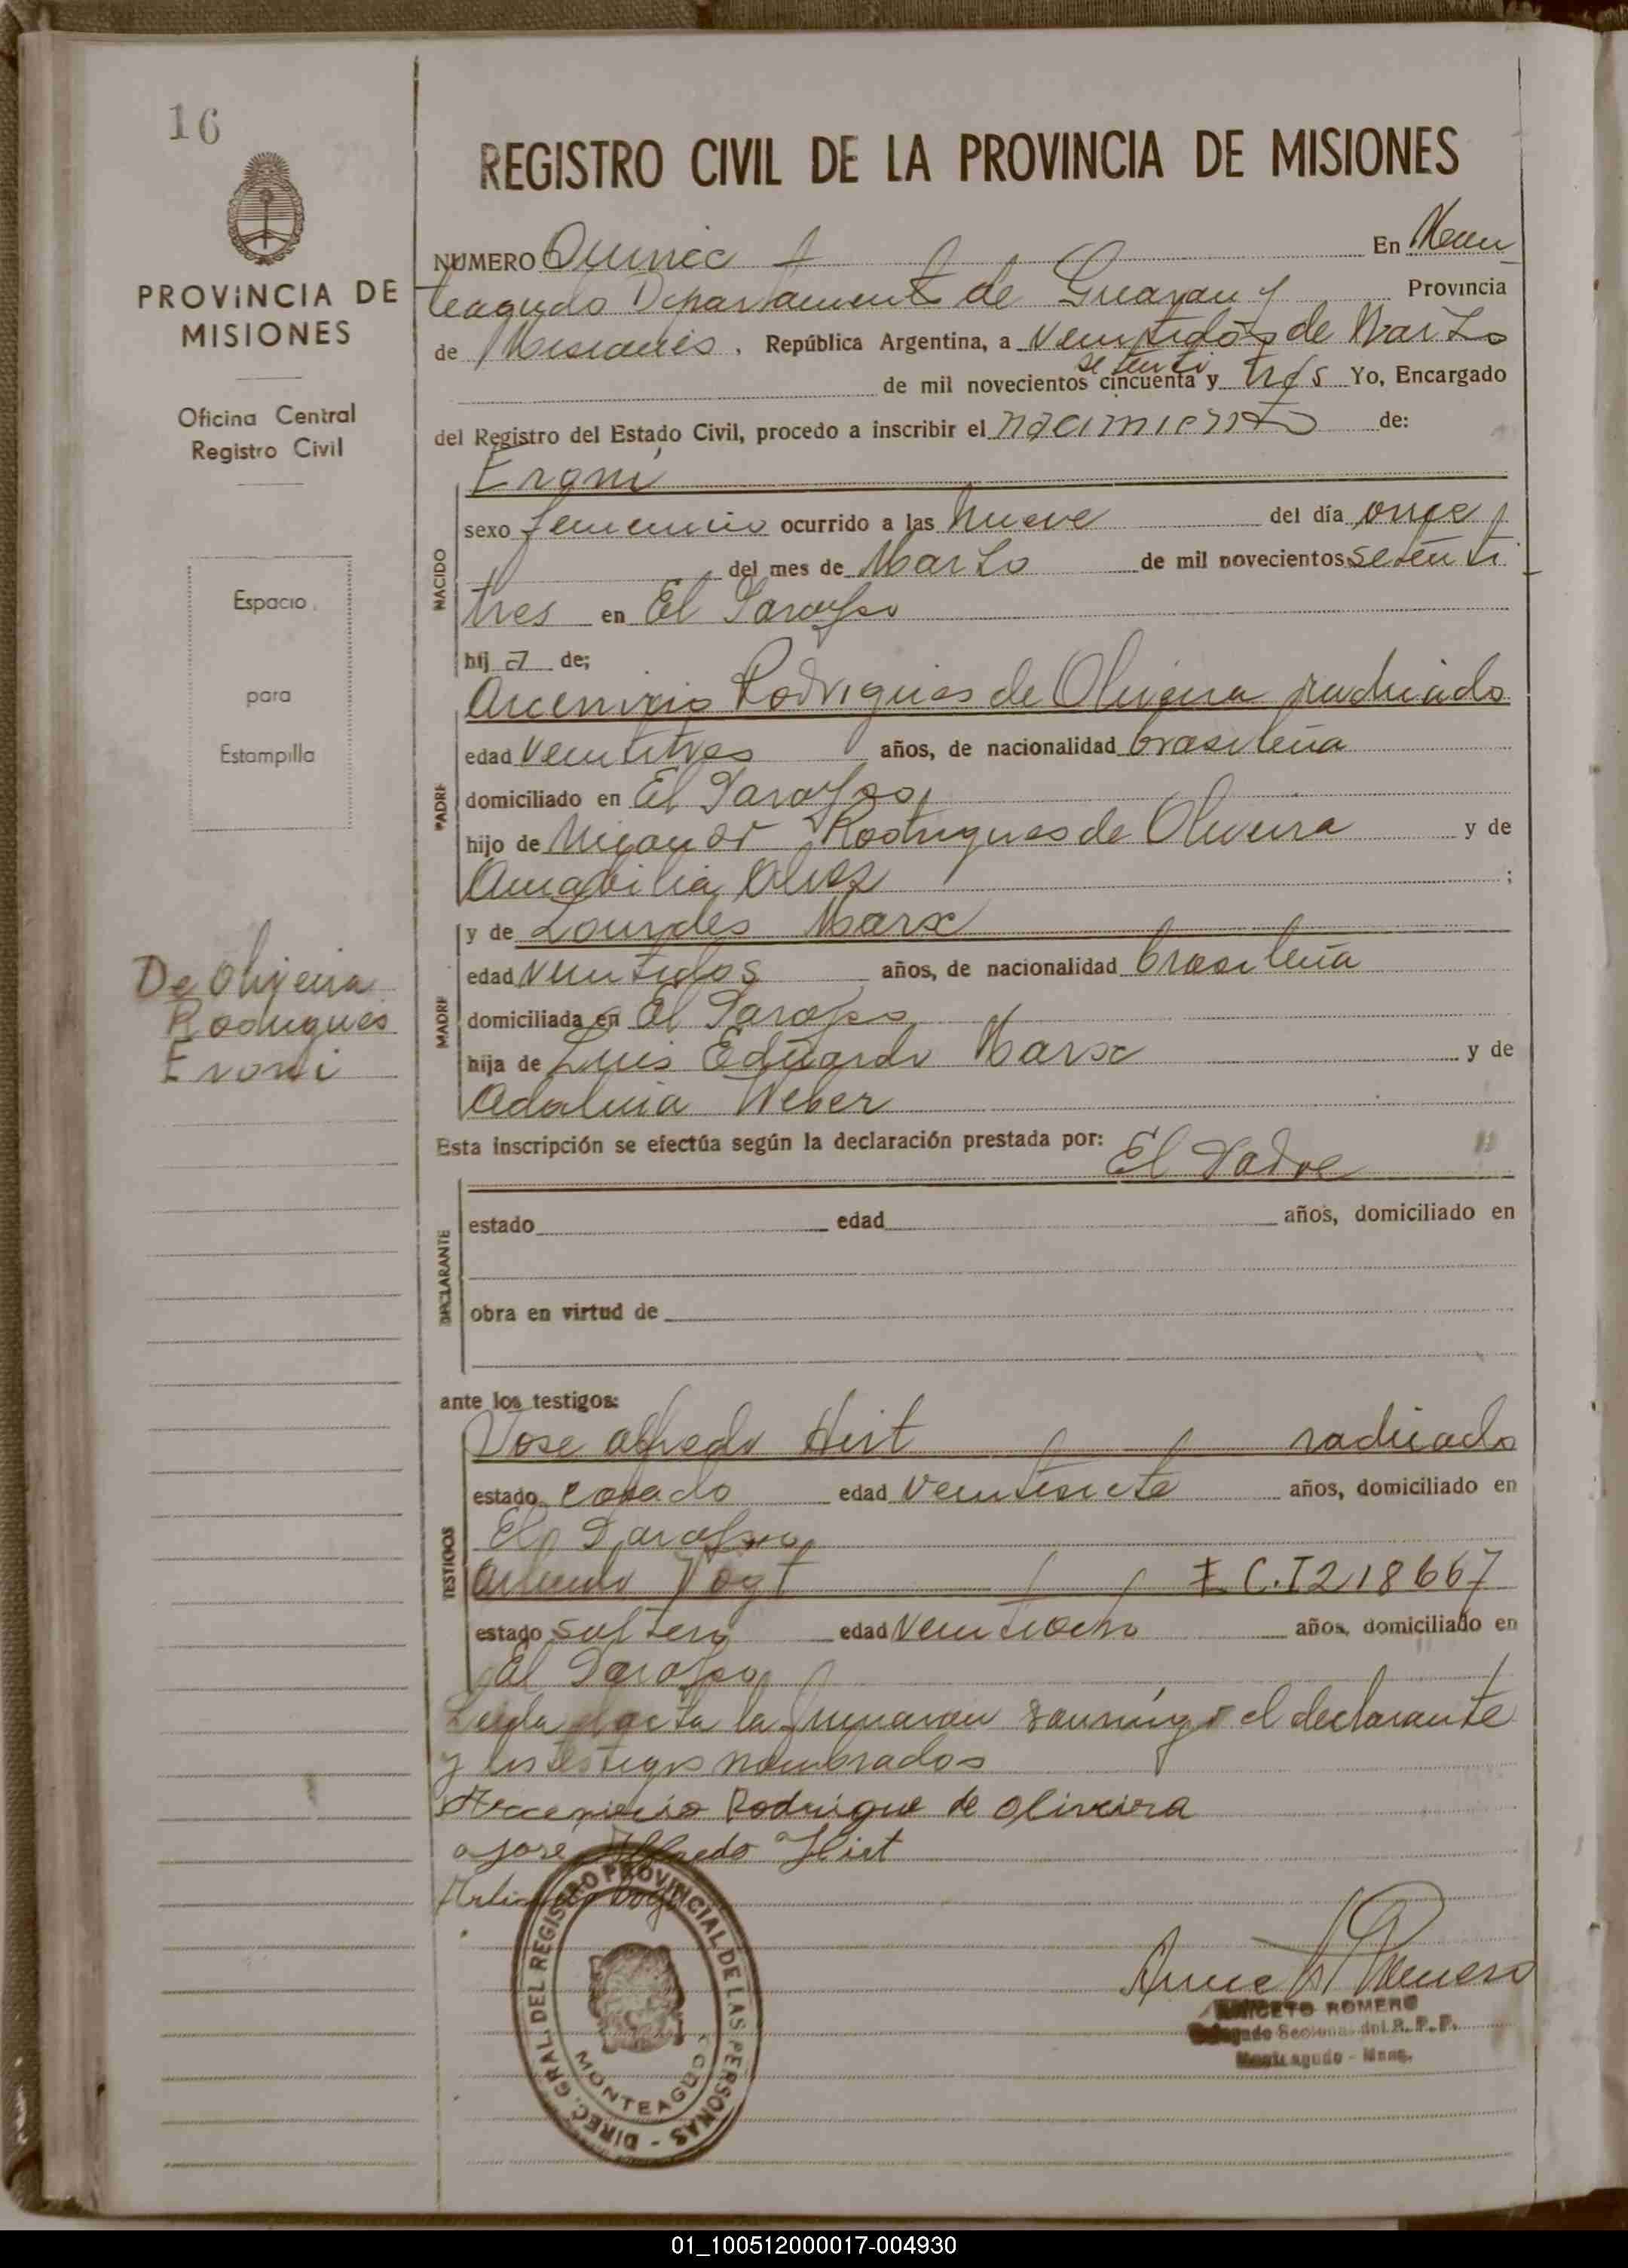 16
REGISTRO CIVIL DE LA PROVINCIA DE MISIONES
PROVINCIA DE
MISIONES
Oficina Central
Registro Civil
Espacio
para
Estampilla
De Oliveira
Rodrigues
Eroni
NUMERO Quince En Mon
teagudo Departamento de Guarany Provincia
de Misiones, República Argentina, a veintidós de Marzo
setenti
de mil novecientos cincuenta y tres Yo, Encargado
del Registro del Estado Civil, procedo a inscribir el nacimiento de:
Eroni
NACIDO
sexo femenino ocurrido a las nueve del día once
del mes de Marzo de mil novecientos setenti
tres en El Parayso
hij a de;
Rodrigues de Oliveira radicado
PADRE
edad veintitres años, de nacionalidad brasileña
domiciliado en El Parayso
hijo de Nicanor Rodrigues de Oliveira y de
Amabilia Alves ;
y de Lourdes Marx
MADRE
edad veintidos años, de nacionalidad brasileña
domiciliada en El Parayso
hija de Luis Eduardo Marx y de
Adalina Weber
Esta inscripción se efectúa según la declaración prestada por: El Padre
DECLARANTE
estado edad años, domiciliado en
obra en virtud de
ante los testigos:
TESTIGOS
Jose Alfredo Hirt radicado
estado casado edad veintisiete años, domiciliado en
El Parayso
Arlindo Vogt C.I 218667
estado soltero edad veintiocho años, domiciliado en
El Parayso
Leida el acta la firmaron conmigo el declarante
y los testigos nombrados
Rodrigue de oliveira
jose Alfredo Hirt
Arlindo Vogt
DIREC. GRAL. DEL REGISTRO PROVINCIAL DE LAS PERSONAS
MONTEAGUDO
ANICETO ROMERO
Delegado Seccional del R. P. P.
Monteagudo - Mnes.
01_100512000017-004930